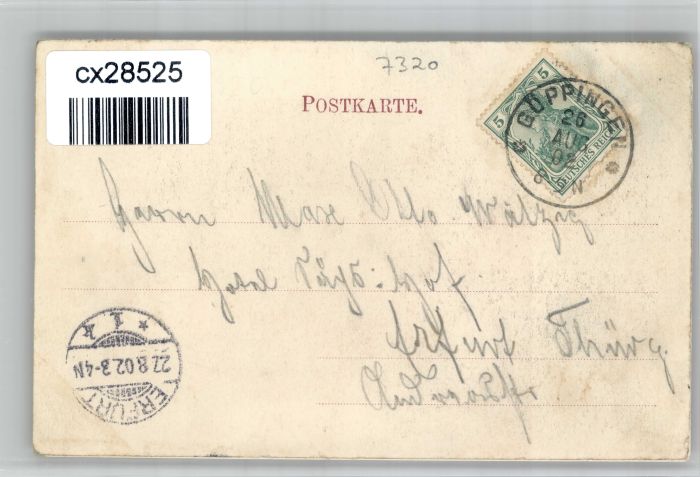 cx28525
7320
POSTKARTE.
5
5
DEUTSCHES REICH
GÖPPINGEN
26
AU
02
N
Herrn Max Otto Wätzig
Hotel
Erfurt Thürg.
ERFURT
* 1 k
27.8.02.3-4N